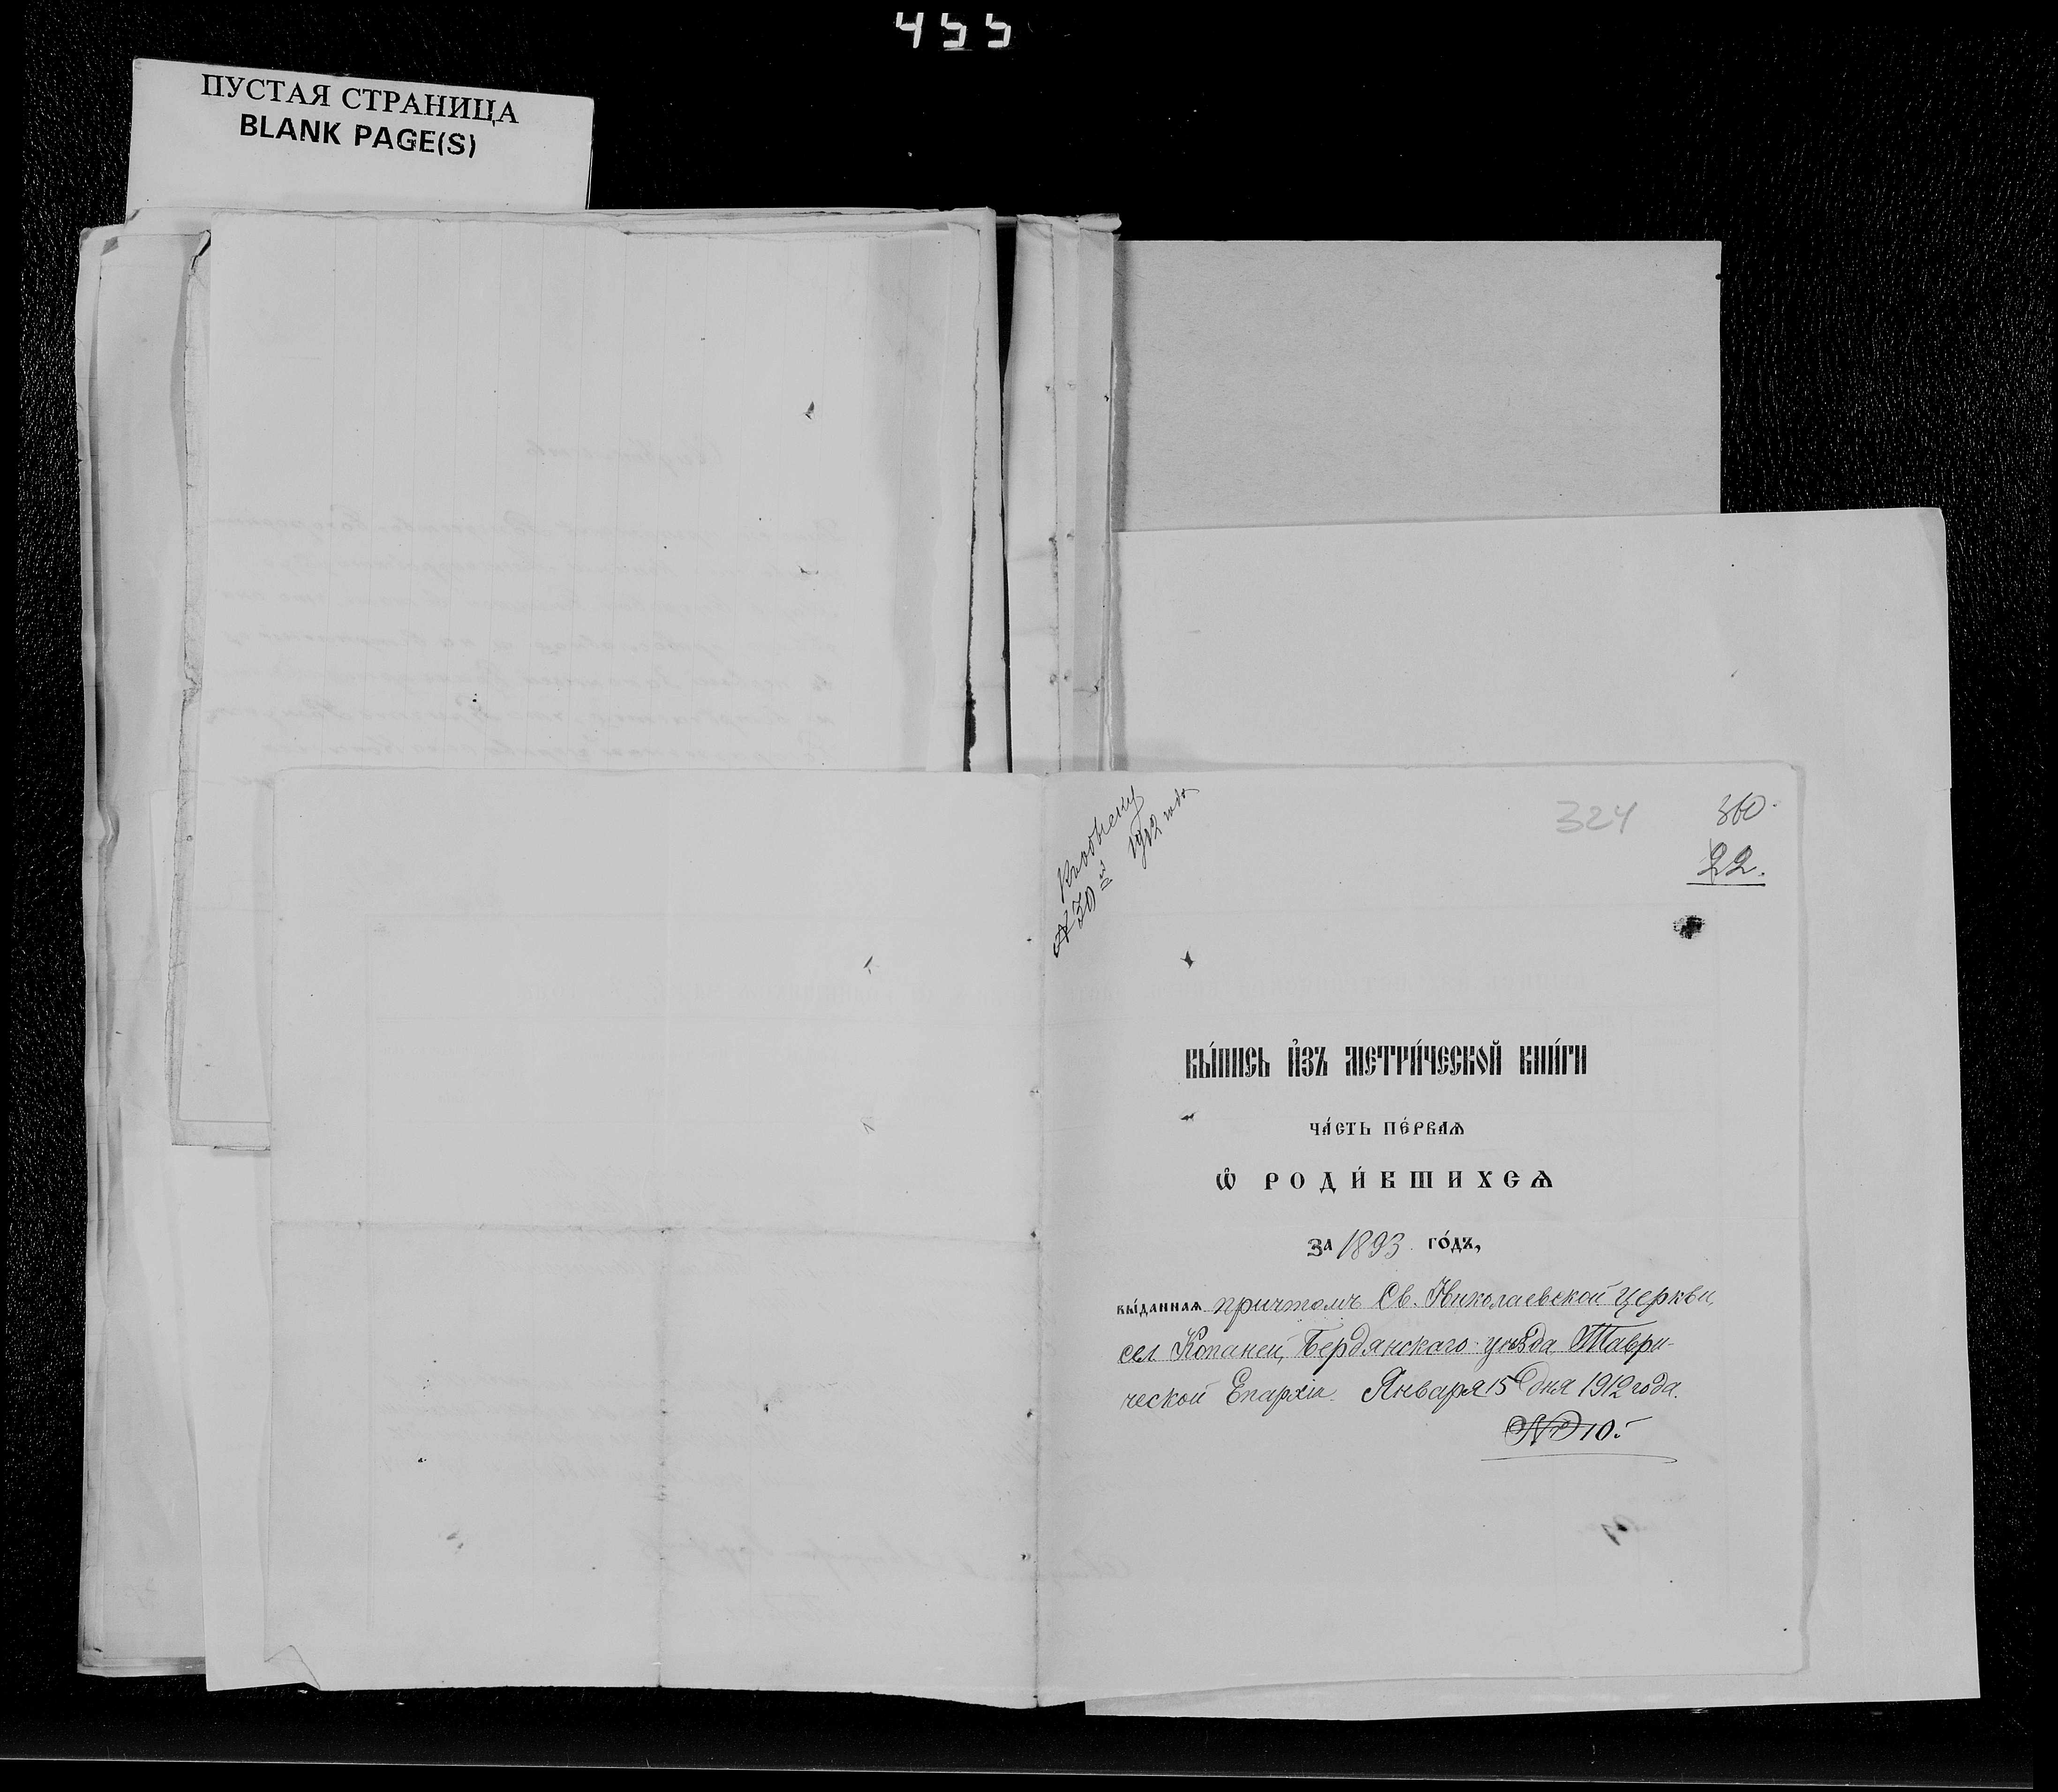 455
ПУСТАЯ СТРАНИЦА
BLANK PAGE(S)
1912 года
324
360.
22.
вы́пись и҆зъ метри́ческой кни́ги
ча́сть пе́рваѧ
ѽ роди́вшихсѧ
за 1893 го́дъ,
вы́даннаѧ причтомъ Св. Николаевской церкви,
сел. Копаней, Бердянскаго уѣзда, Таври-
ческой Епархіи. Января 15 дня 1912 года.
№ 10.